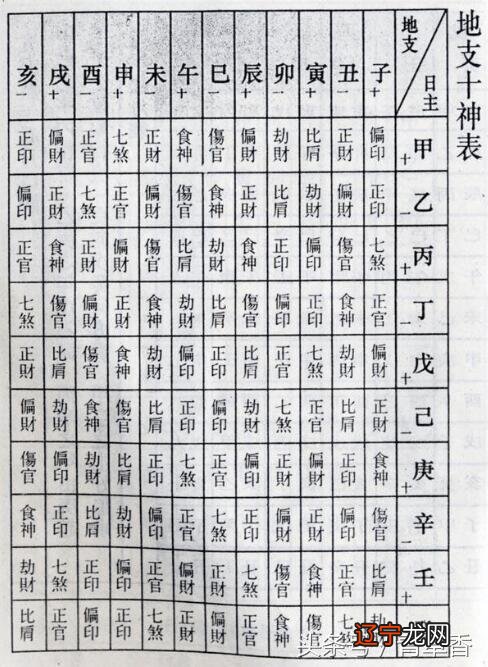 地支十神表
地支 日主
子 丑 寅 卯 辰 巳 午 未 申 酉 戌 亥
+ 一 + 一 + 一 + 一 + 一 + 一
甲+ 偏印 正財 比肩 劫財 偏財 傷官 食神 正財 七煞 正官 偏財 正印
乙一 正印 偏財 劫財 比肩 正財 食神 傷官 偏財 正官 七煞 正財 偏印
丙+ 七煞 傷官 偏印 正印 食神 劫財 比肩 傷官 偏財 正財 食神 正官
丁一 正官 食神 正印 偏印 傷官 比肩 劫財 食神 正財 偏財 傷官 七煞
戊+ 偏財 劫財 七煞 正官 比肩 正印 偏印 劫財 食神 傷官 比肩 正財
己一 正財 比肩 正官 七煞 劫財 偏印 正印 比肩 傷官 食神 劫財 偏財
庚+ 食神 正印 偏財 正財 偏印 正官 七煞 正印 比肩 劫財 偏印 傷官
辛一 傷官 偏印 正財 偏財 正印 七煞 正官 偏印 劫財 比肩 正印 食神
壬+ 比肩 正官 食神 傷官 七煞 正財 偏財 正官 偏印 正印 七煞 劫財
傷官 食神 正官 偏財 正財 七煞 正印 偏印 正官 比肩
辽宁龙网